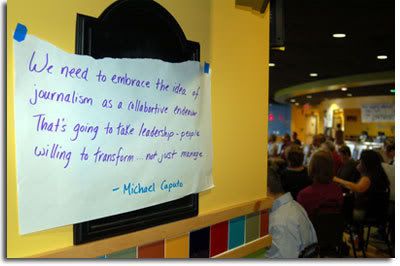 We need to embrace the idea of
journalism as a collabortive endeavor
That's going to take leadership - people
willing to transform ... not just manage
- Michael Caputo